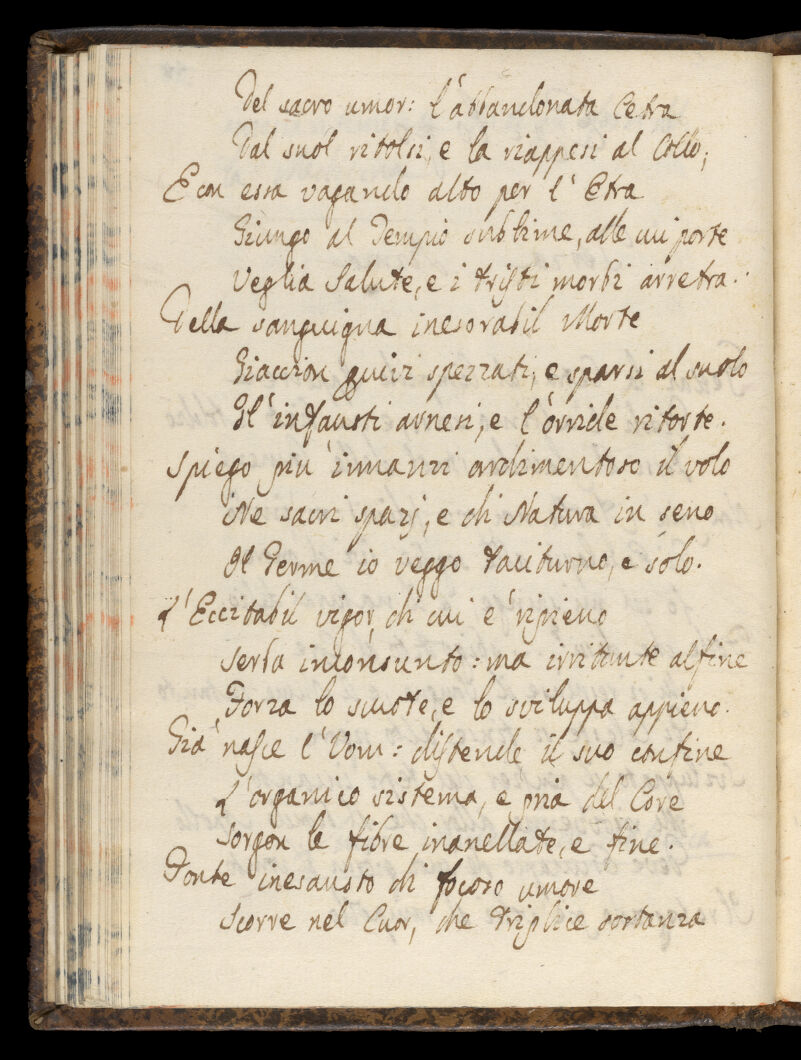 Del sacro umor: l'abbandonata Cetra
Dal suol ritolsi, e la riappesi al Collo;
E con essa vagando alto per l'Etra
Giungo al Tempio sublime, alle cui porte
Veglia Salute, e i tristi morbi arretra.
Della sanguigna inesorabil Morte
Giaccion quivi spezzati, e sparsi al suolo
Gl'infausti arnesi, e l'orride ritorte.
Spiego più innanzi ardimentoso il volo
Ne sacri spazj, e di Natura in seno
Il Germe io veggo taciturno, e solo.
L'Eccitabil vigor, di cui è ripieno
Serba inconsunto: ma irritante alfine
Forza lo scuote, e lo sviluppa appieno.
Già nasce l'Uom: distende il suo confine
L'organico sistema, e pria del Core
Sorgon le fibre inanellate, e fine.
Fonte inesausto di focoso umore
Scorre nel Cuor, che triplice sortanza